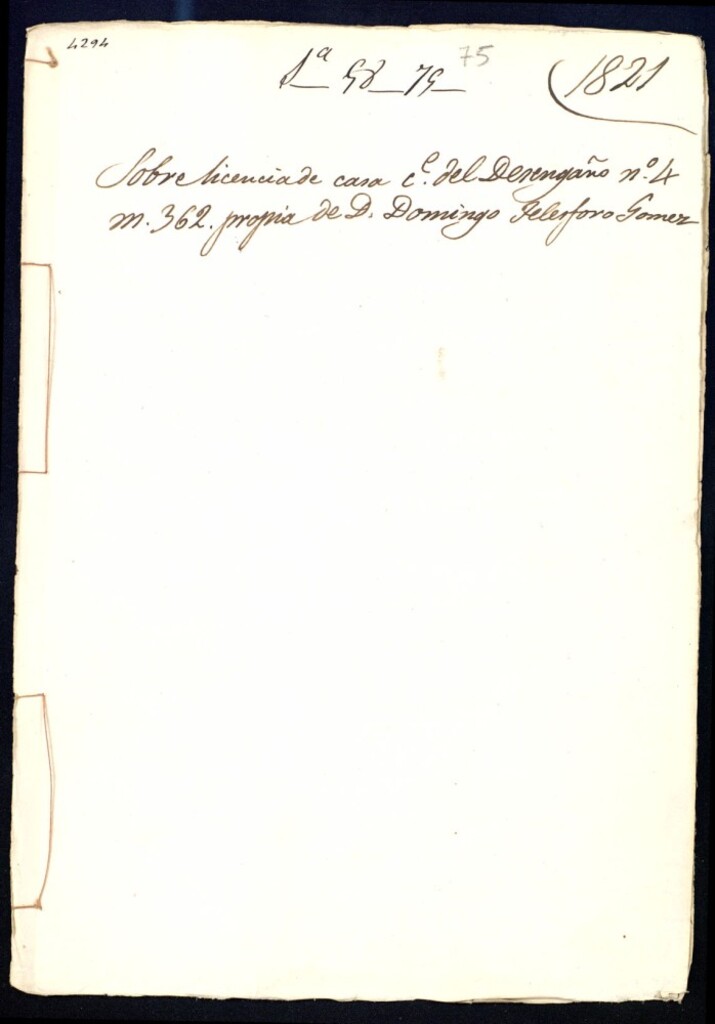 4294
1ª 58 75
75
1821
Sobre licencia de casa c.e del Desengaño n.º 4
m. 362. propia de D. Domingo Telesforo Gomez